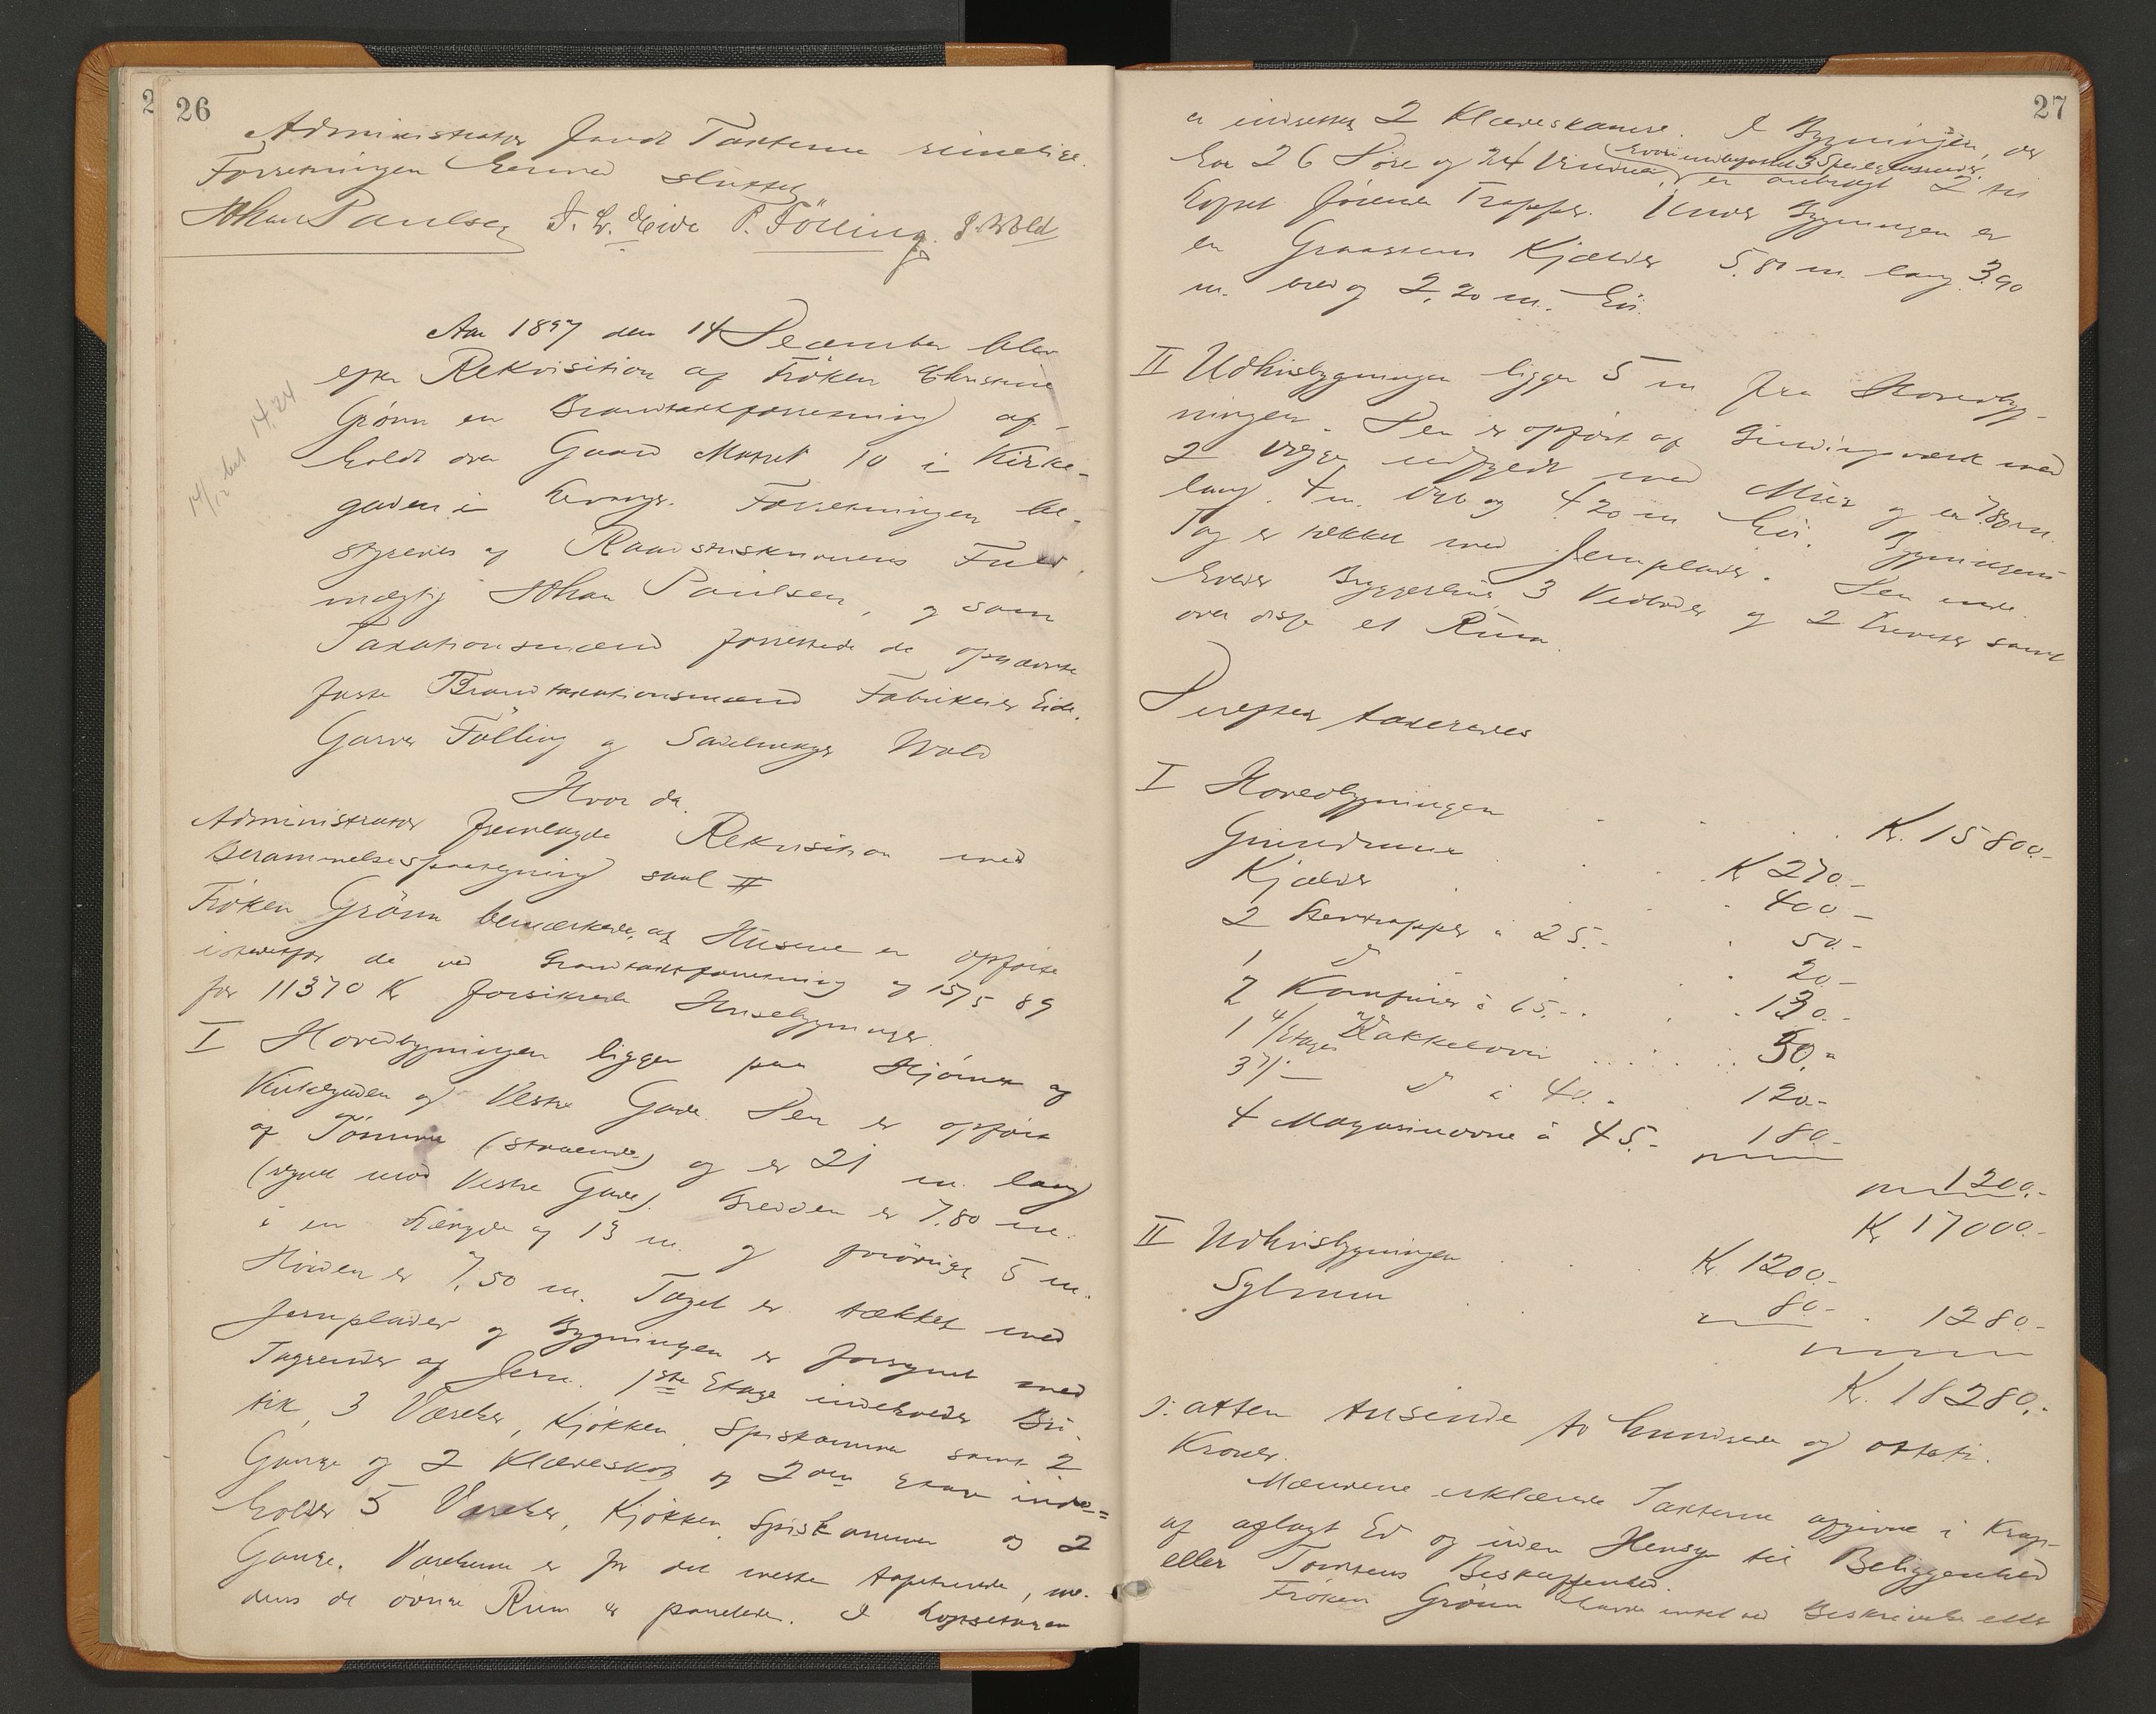 26
Administrator fandt Taxterne rimelige.
Forretningen hermed sluttet
Johan Paulsen J. L. Eide P. Fölling J. Wold
Aar 1897 den 14 December blev
efter Rekvisition af Fröken Christine
Grönn en Brandtaxtforretning af-
holdt over Gaard Matrik 10 i Kirke-
gaden i Levanger. Forretningen be-
styredes af Raadstuskriverens Fuld-
mægtig Johan Paulsen, og som
Taxationsmænd forrettede de opnævnte
faste Brandtaxationsmænd Fabrikeier Eide,
Garver Fölling og Sadelmager Wold
14/12 bet 14.24
Hvor da
Administrator fremlagde Rekvisition med
Berammelsespaategning saal #
Fröken Grönn bemærkede, at Husene er opförte
istedetfor de ved Brandtaxtforretning af 15/5 89
for 11370 Kr forsikrede Husebygninger.
I Hovedbygningen ligger paa Hjörnet af
Kirkegaden og Vestre Gade. Den er opfört
af Tömmer (staaende) og er 21 m. lang
(regnet mod Vestre Gade). Bredden er 7.80 m.
i en Længde af 13 m. og forövrigt 5 m.
Höiden er 7,50 m. Taget er tækket med
Jernplader og Bygningen er forsynet med
Tagrender af Jern. 1ste Etage indeholder Bu-
tik, 3 Værelser, Kjökken, Spiskammer samt 2
Gange og 2 Klædeskab og 2den Etage inde=
holder 5 Værelser, Kjökken, Spiskammer og 2
Gange. Værelserne er for det meste tapetserede, me-
dens de övrige Rum er panelede. I Loftsetagen
27
er indrettet 2 Klædeskamre. I Bygningen, der
har 26 Döre og 24 Vinduer, er anbragt 2 til
hvori indbefattet 3 Speilglasruder,
Loftet förende Trapper. Under Bygningen er
en Graastens Kjælder 5.80 m. lang 3.90
m. bred og 2,20 m. höi.
II Udhusbygningen ligger 5 m fra Hovedbyg-
ningen. Den er opfört af Bindingsværk med
2 Vægge udfyldt med Mur og er 7.80 m.
lang, 4 m. bred og 4.20 m höi. Bygningens
Tag er tækket med Jernplader. Den inde-
holder Bryggerhus, 3 Vedboder og 2 Privater samt
over disse et Rum.
Derefter taxeredes
I Hovedbygningen Kr. 15800.-
Grundmur Kr 270.-
Kjælder 400.-
2 Stentrapper à 25.- 50.-
1 D 20.-
2 Komfurer à 65.- 130.-
1 4/Etages Kakkelovn 50.-
3 3/- D à 40.- 120.-
4 Magasinovne à 45.- 180.-
1200.-
Kr 17000.-
II Udhusbygningen Kr. 1200.-
Sylmur 80.- 1280.-
Kr. 18280.-
ɔ: atten tusinde to hundrede og otteti
Kroner.
Mændene erklærede Taxterne afgivne i Kraft
af aflagt Ed og uden Hensyn til Beliggenhed
eller Tomtens Beskaffenhed.
Fröken Grönn havde intet ved Beskrivelse eller